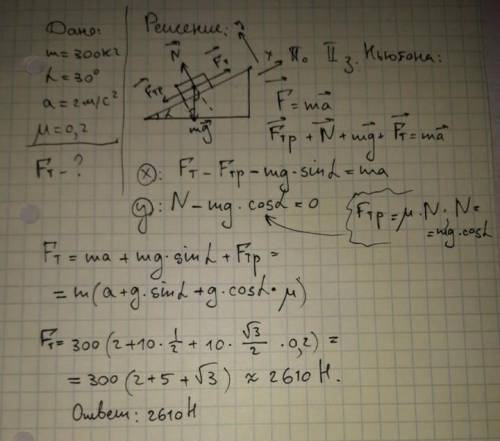 Дано:
m = 300кг
α = 30°
a = 2м/с²
μ = 0,2
F⃗т - ?
Решение:
y
N⃗
F⃗т
x
F⃗тр
α
mg⃗
По II з. Ньютона:
F⃗ = ma⃗
F⃗тр + N⃗ + mg⃗ + F⃗т = ma⃗
(x): Fт - Fтр - mg·sinα = ma
(y): N - mg·cosα = 0
Fтр = μ·N · N =
= mg·cosα
F⃗т = ma + mg·sinα + Fтр =
= m(a + g·sinα + g·cosα·μ)
F⃗т = 300 (2 + 10 · 1/2 + 10 · √3/2 · 0,2) =
= 300 (2 + 5 + √3) ≈ 2610 Н.
Ответ: 2610 Н